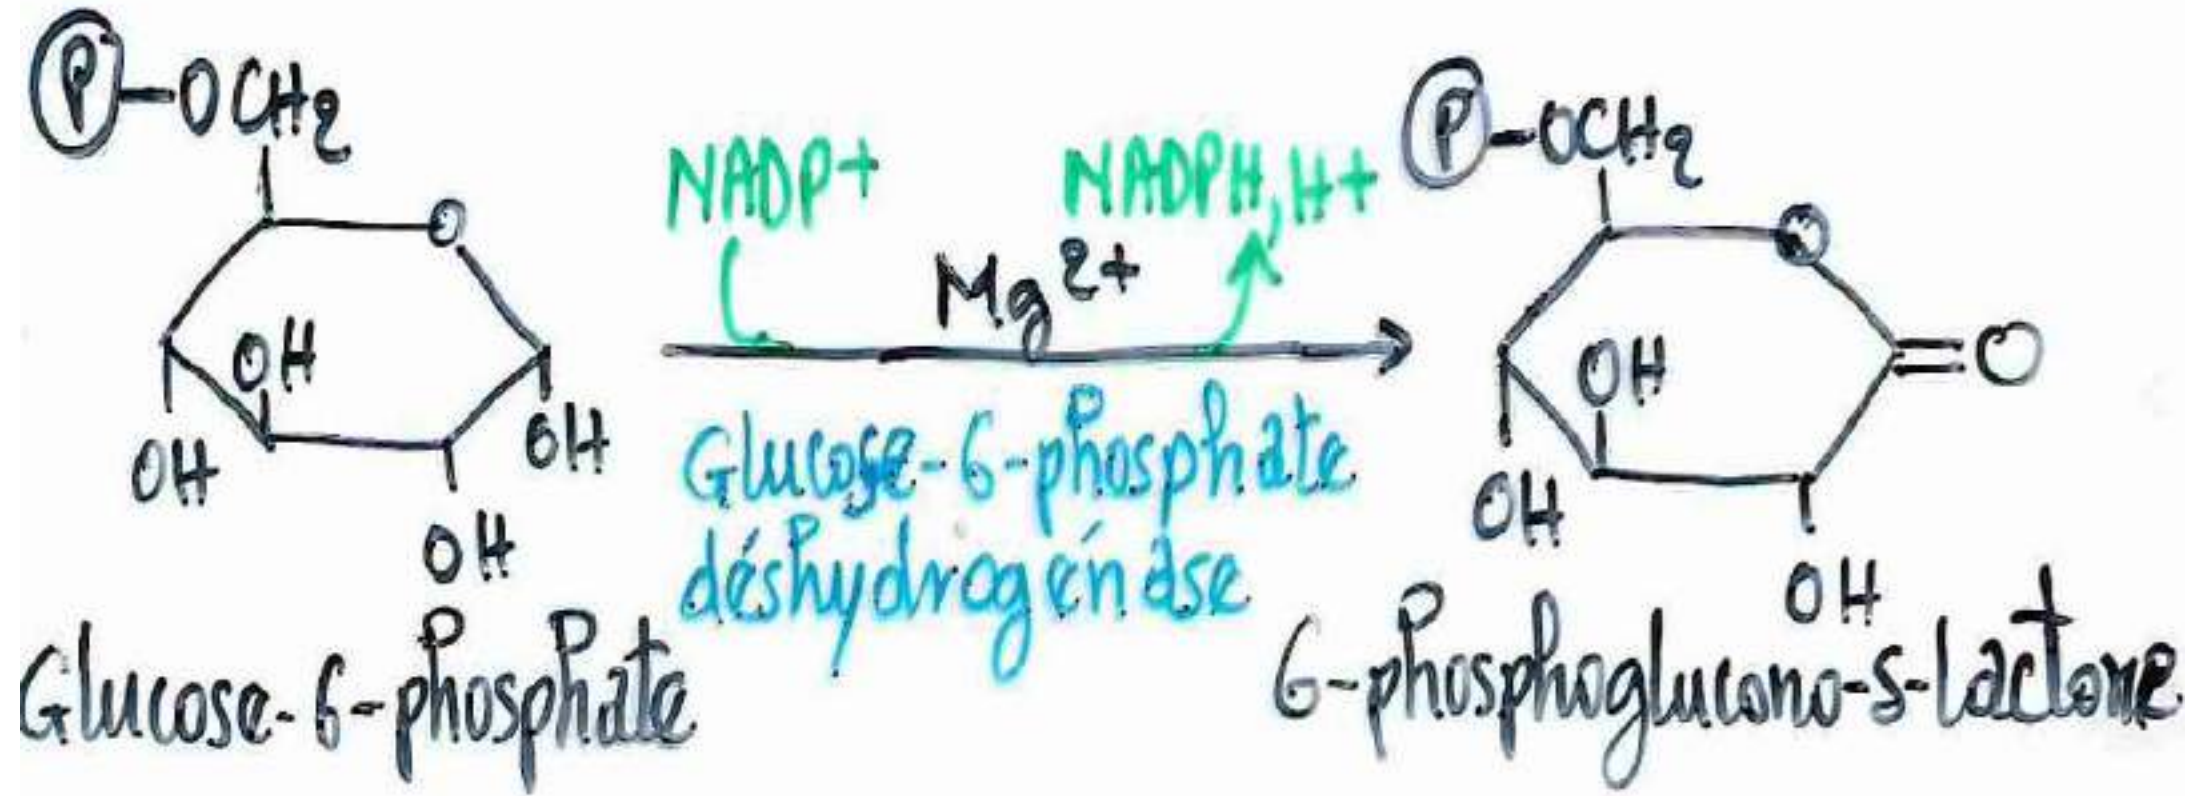 P-OCH2
O
OH
OH
OH
OH
Glucose-6-phosphate
NADP+
NADPH,H+
Mg2+
Glucose-6-phosphate
déshydrogénase
P-OCH2
O
=O
OH
OH
OH
6-phosphoglucono-δ-lactone